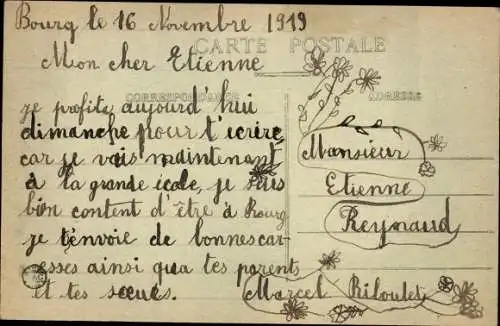 Bourg le 16 Novembre 1919
CARTE POSTALE
Mon cher Etienne
CORRESPONDANCE
ADRESSE
je profite aujourd'hui
dimanche pour t'ecrire
car je vais maintenant
à la grande école, je suis
bien content d'être à Bourg
je t'envoie de bonnes car-
esses ainsi qua tes parents
et tes sœurs.
Monsieur
Etienne
Reynaud
Marcel Riloulet